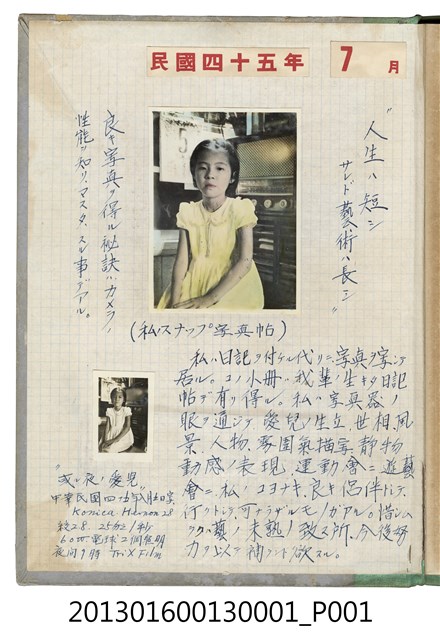 民國四十五年 7 月
"人生ハ短シ
サレド藝術ハ長シ"
良キ寫真ヲ得ル秘訣ハカメラノ
性能ヲ知リ、マスタースル事デアル。
(私ノスナップ寫真帖)
私ハ日記ヲ付ケル代リニ寫真ヲ寫シテ
居ル。コノ小冊ハ我輩ノ生キタ日記
帖デ有リ得ル。私ハ寫真器ノ
眼ヲ通シテ愛兒ノ生立、世相、風
景、人物、雰圍氣描寫、靜物
動感ノ表現、運動會ニ遊藝
會ニ、私ノコヨナキ良キ侶伴トシテ
行
ノ未熟ノ致ス所、今後努
力ヲ以テ補ヒント欲スル。
"或ル夜ノ愛兒"
中華民國四十五年
Konica Hexanon 28
絞2.8. 25分ノ1秒
60W.電球2個使用
夜間9時 Tri X Film
201301600130001_P001